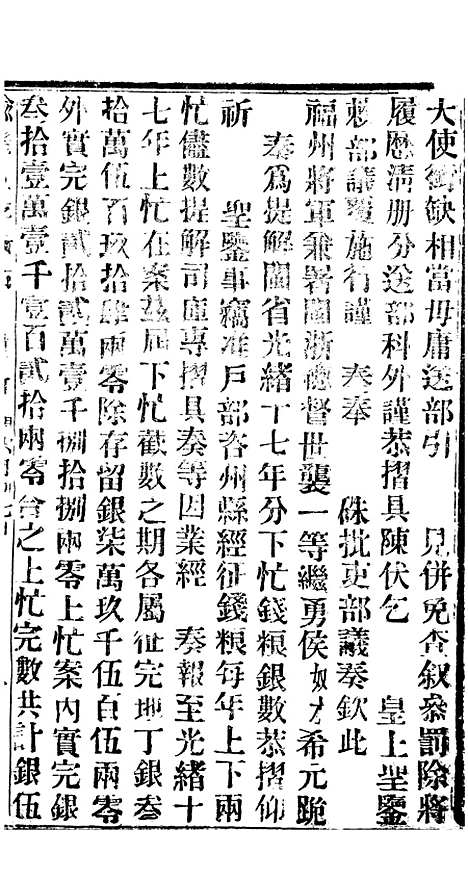 大使銜缺相當毋庸送部引　見併免查叙參罰除將
履歷清册分送部科外謹恭摺具陳伏乞　皇上聖鑒
敕部議覆施行謹　奏奉　硃批吏部議奏欽此
福州將軍兼署閩浙總督世襲一等繼勇侯奴才希元跪
奏爲提解閩省光緒十七年分下忙錢粮銀數恭摺仰
祈　聖鑒事竊准戶部咨州縣經征錢粮每年上下兩
忙儘數提解司庫專摺具奏等因業經　奏報至光緒十
七年上忙在案茲屆下忙截數之期各屬征完地丁銀叁
拾萬伍百玖拾肆兩零除存留銀柒萬玖千伍百伍兩零
外實完銀貳拾貳萬壹千捌拾捌兩零上忙案內實完銀
叁拾壹萬壹千壹百貳拾兩零合之上忙完數共計銀伍